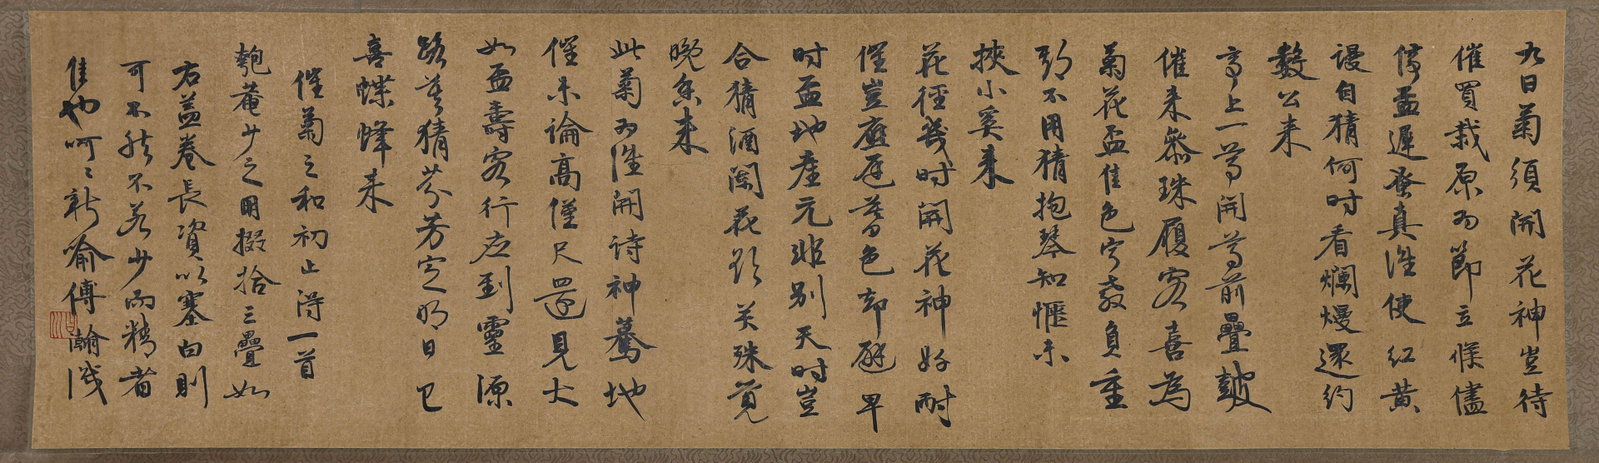 九日菊須開花神豈待
催買栽原為節立候儘
傳盃遲發真誰使紅黃
謾自猜何時看爛熳還約
數公來
亭上一尊開尊前疊鼓
催來參珠履客喜為
菊花盃佳色寧教負重
不用猜抱琴知愜未
挾小奚來
花徑幾時開花神好耐
催豈應遲暮色却避早
時盃地產元非別天時豈
合猜酒闌花欲笑殊覺
晚香來
此菊為誰開詩神驀地
催未論高僅尺還見大
如盃壽客行應到靈源
路莫猜芬芳定明日已
喜蝶蜂來
催菊之和初止得一首
匏菴少之因掇拾三疊如
右蓋卷長資以塞白則
可不然不若少而精者
佳也呵呵新喻傅瀚識